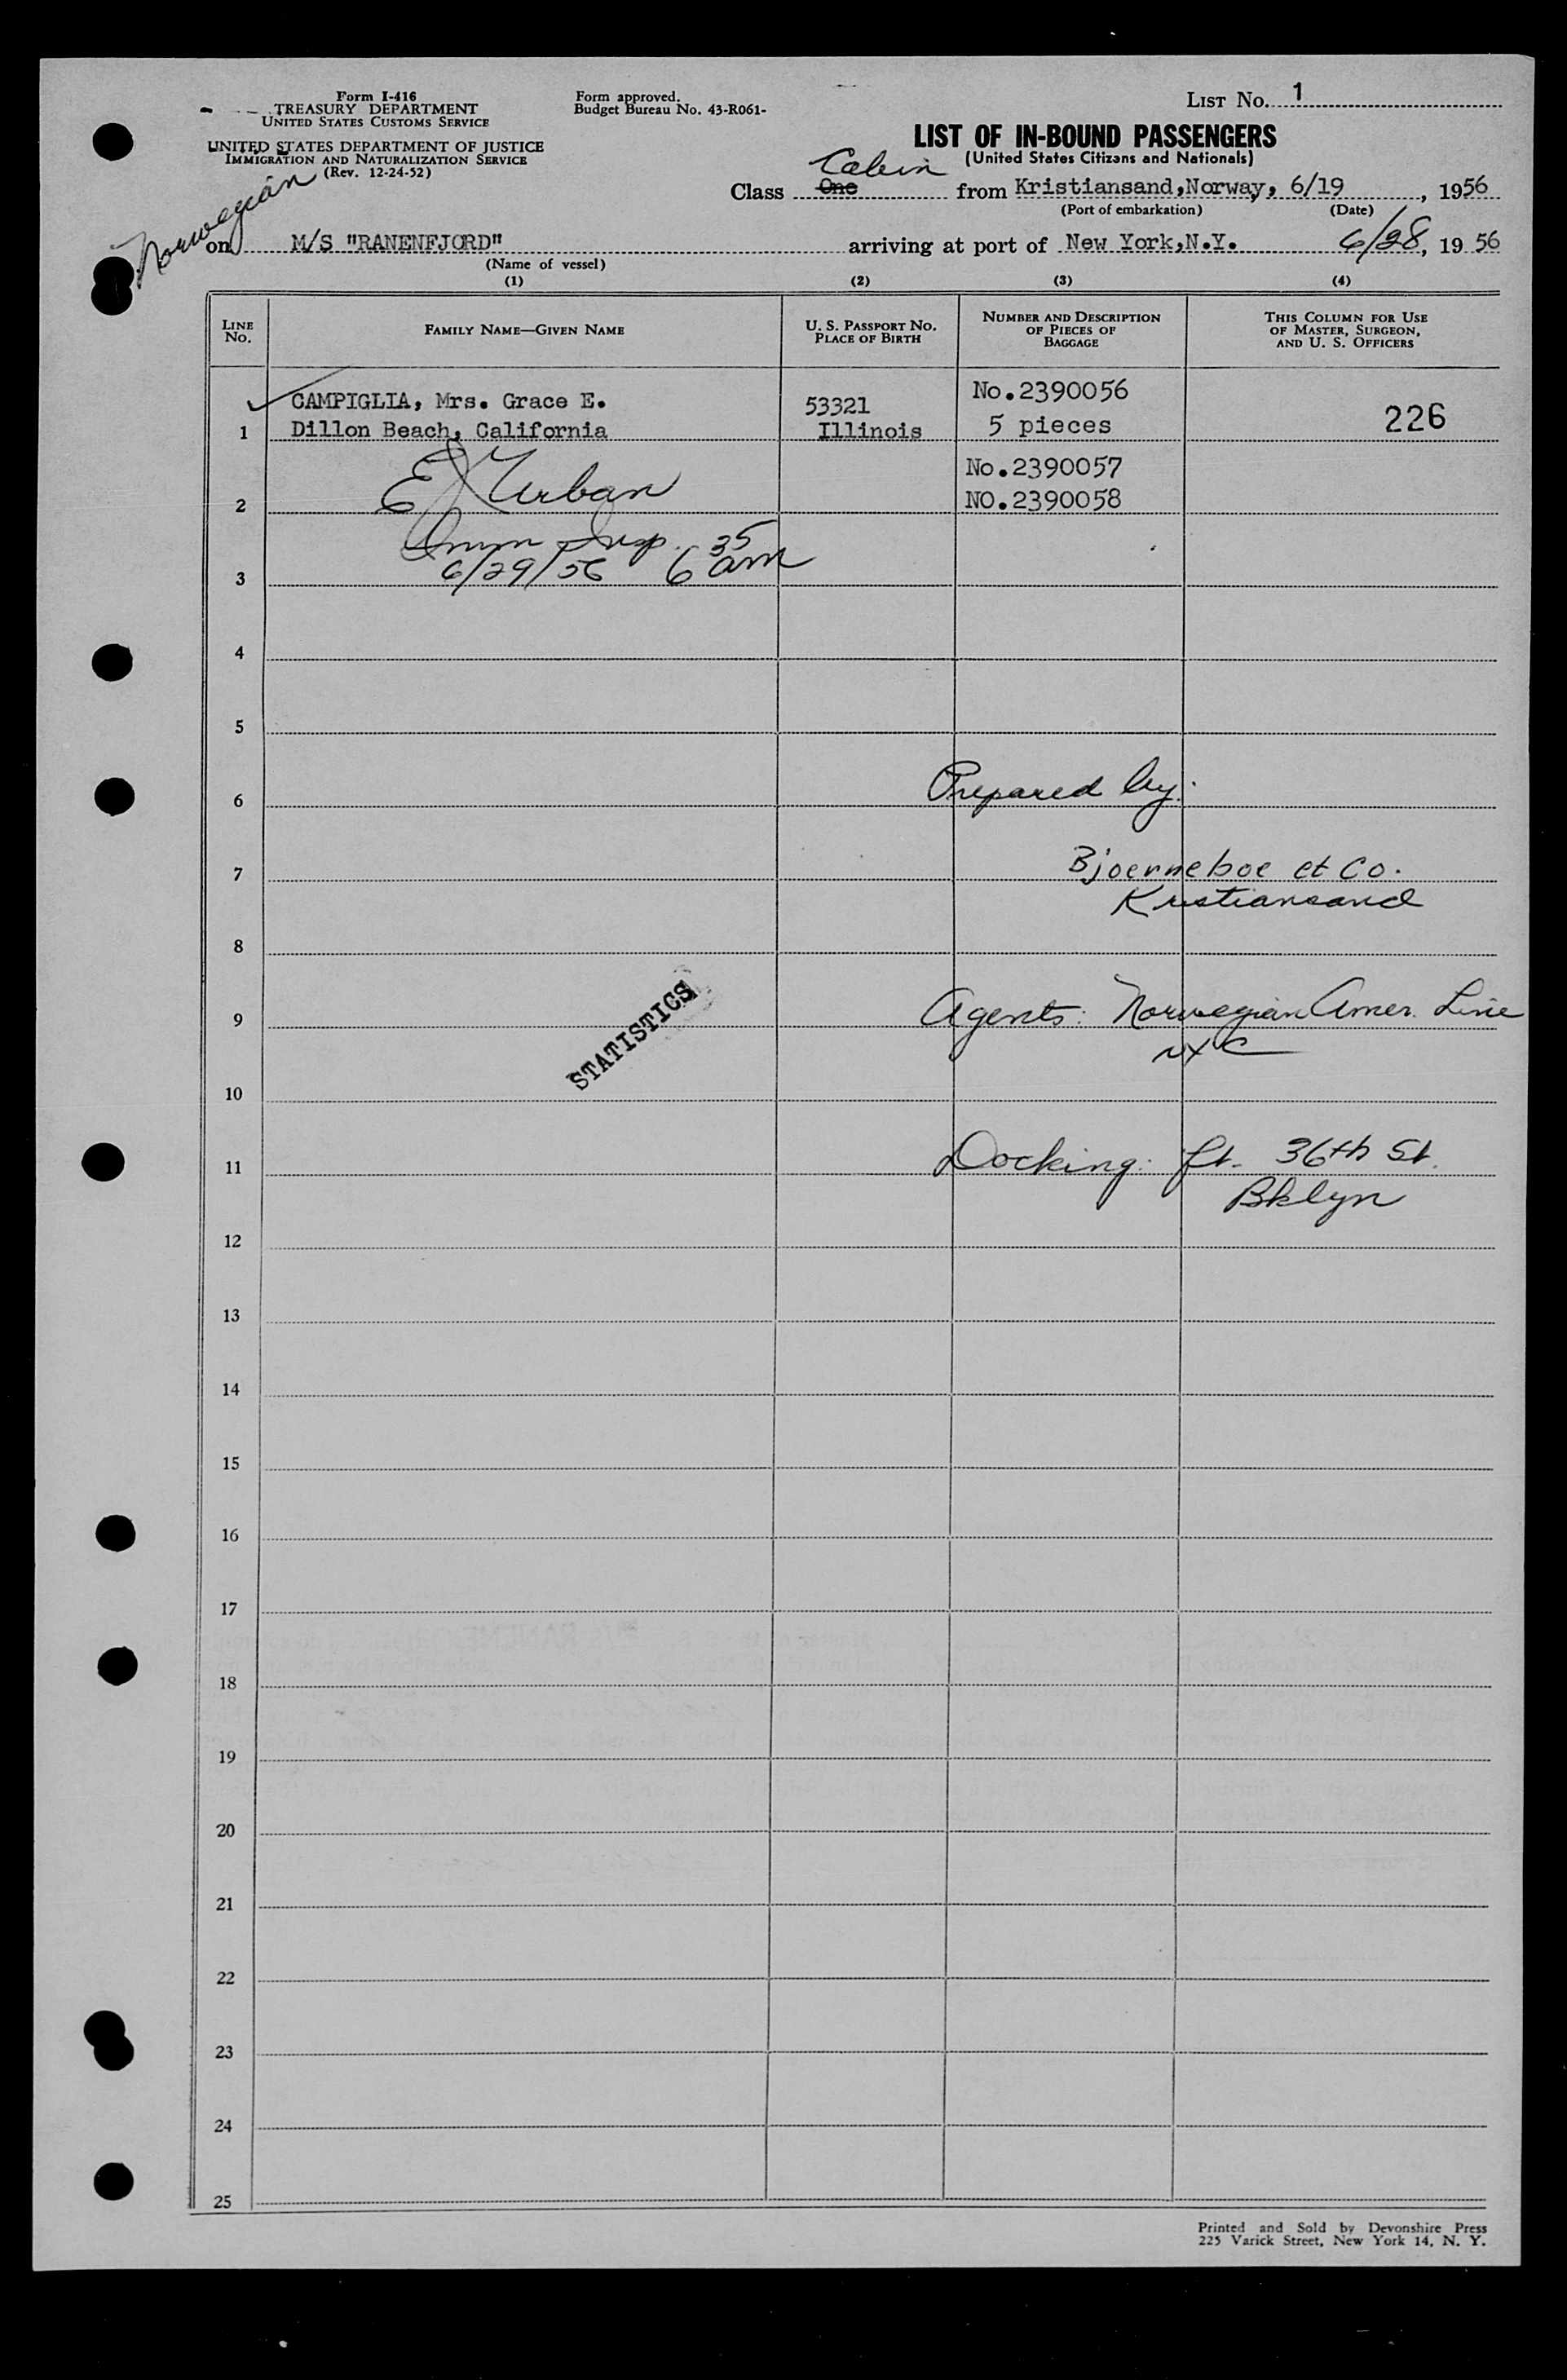 Form I-416
TREASURY DEPARTMENT
UNITED STATES CUSTOMS SERVICE
UNITED STATES DEPARTMENT OF JUSTICE
IMMIGRATION AND NATURALIZATION SERVICE
(Rev. 12-24-52)
Form approved.
Budget Bureau No. 43-R061-
LIST No. 1
LIST OF IN-BOUND PASSENGERS
(United States Citizens and Nationals)
Cabin
Class One from Kristiansand,Norway, 6/19, 1956
(Port of embarkation) (Date)
Norwegian
on M/S "RANENFJORD" arriving at port of New York,N.Y. 6/28, 1956
(Name of vessel)
(1) (2) (3) (4)
LINE No.
FAMILY NAME—GIVEN NAME
U. S. PASSPORT No.
PLACE OF BIRTH
NUMBER AND DESCRIPTION
OF PIECES OF
BAGGAGE
THIS COLUMN FOR USE
OF MASTER, SURGEON,
AND U. S. OFFICERS
CAMPIGLIA, Mrs. Grace E. 53321 No.2390056 226
1 Dillon Beach, California Illinois 5 pieces
No.2390057
2 E J Urban NO.2390058
Imm Insp.
3 6/29/56 6 35 am
4
5
6 Prepared by:
7 Bjoernneboe et Co.
Kristiansand
8
9 Agents: Norwegian Amer. Line
NYC
STATISTICS
10
11 Docking: ft. 36th St.
Bklyn
12
13
14
15
16
17
18
19
20
21
22
23
24
25
Printed and Sold by Devonshire Press
225 Varick Street, New York 14, N. Y.